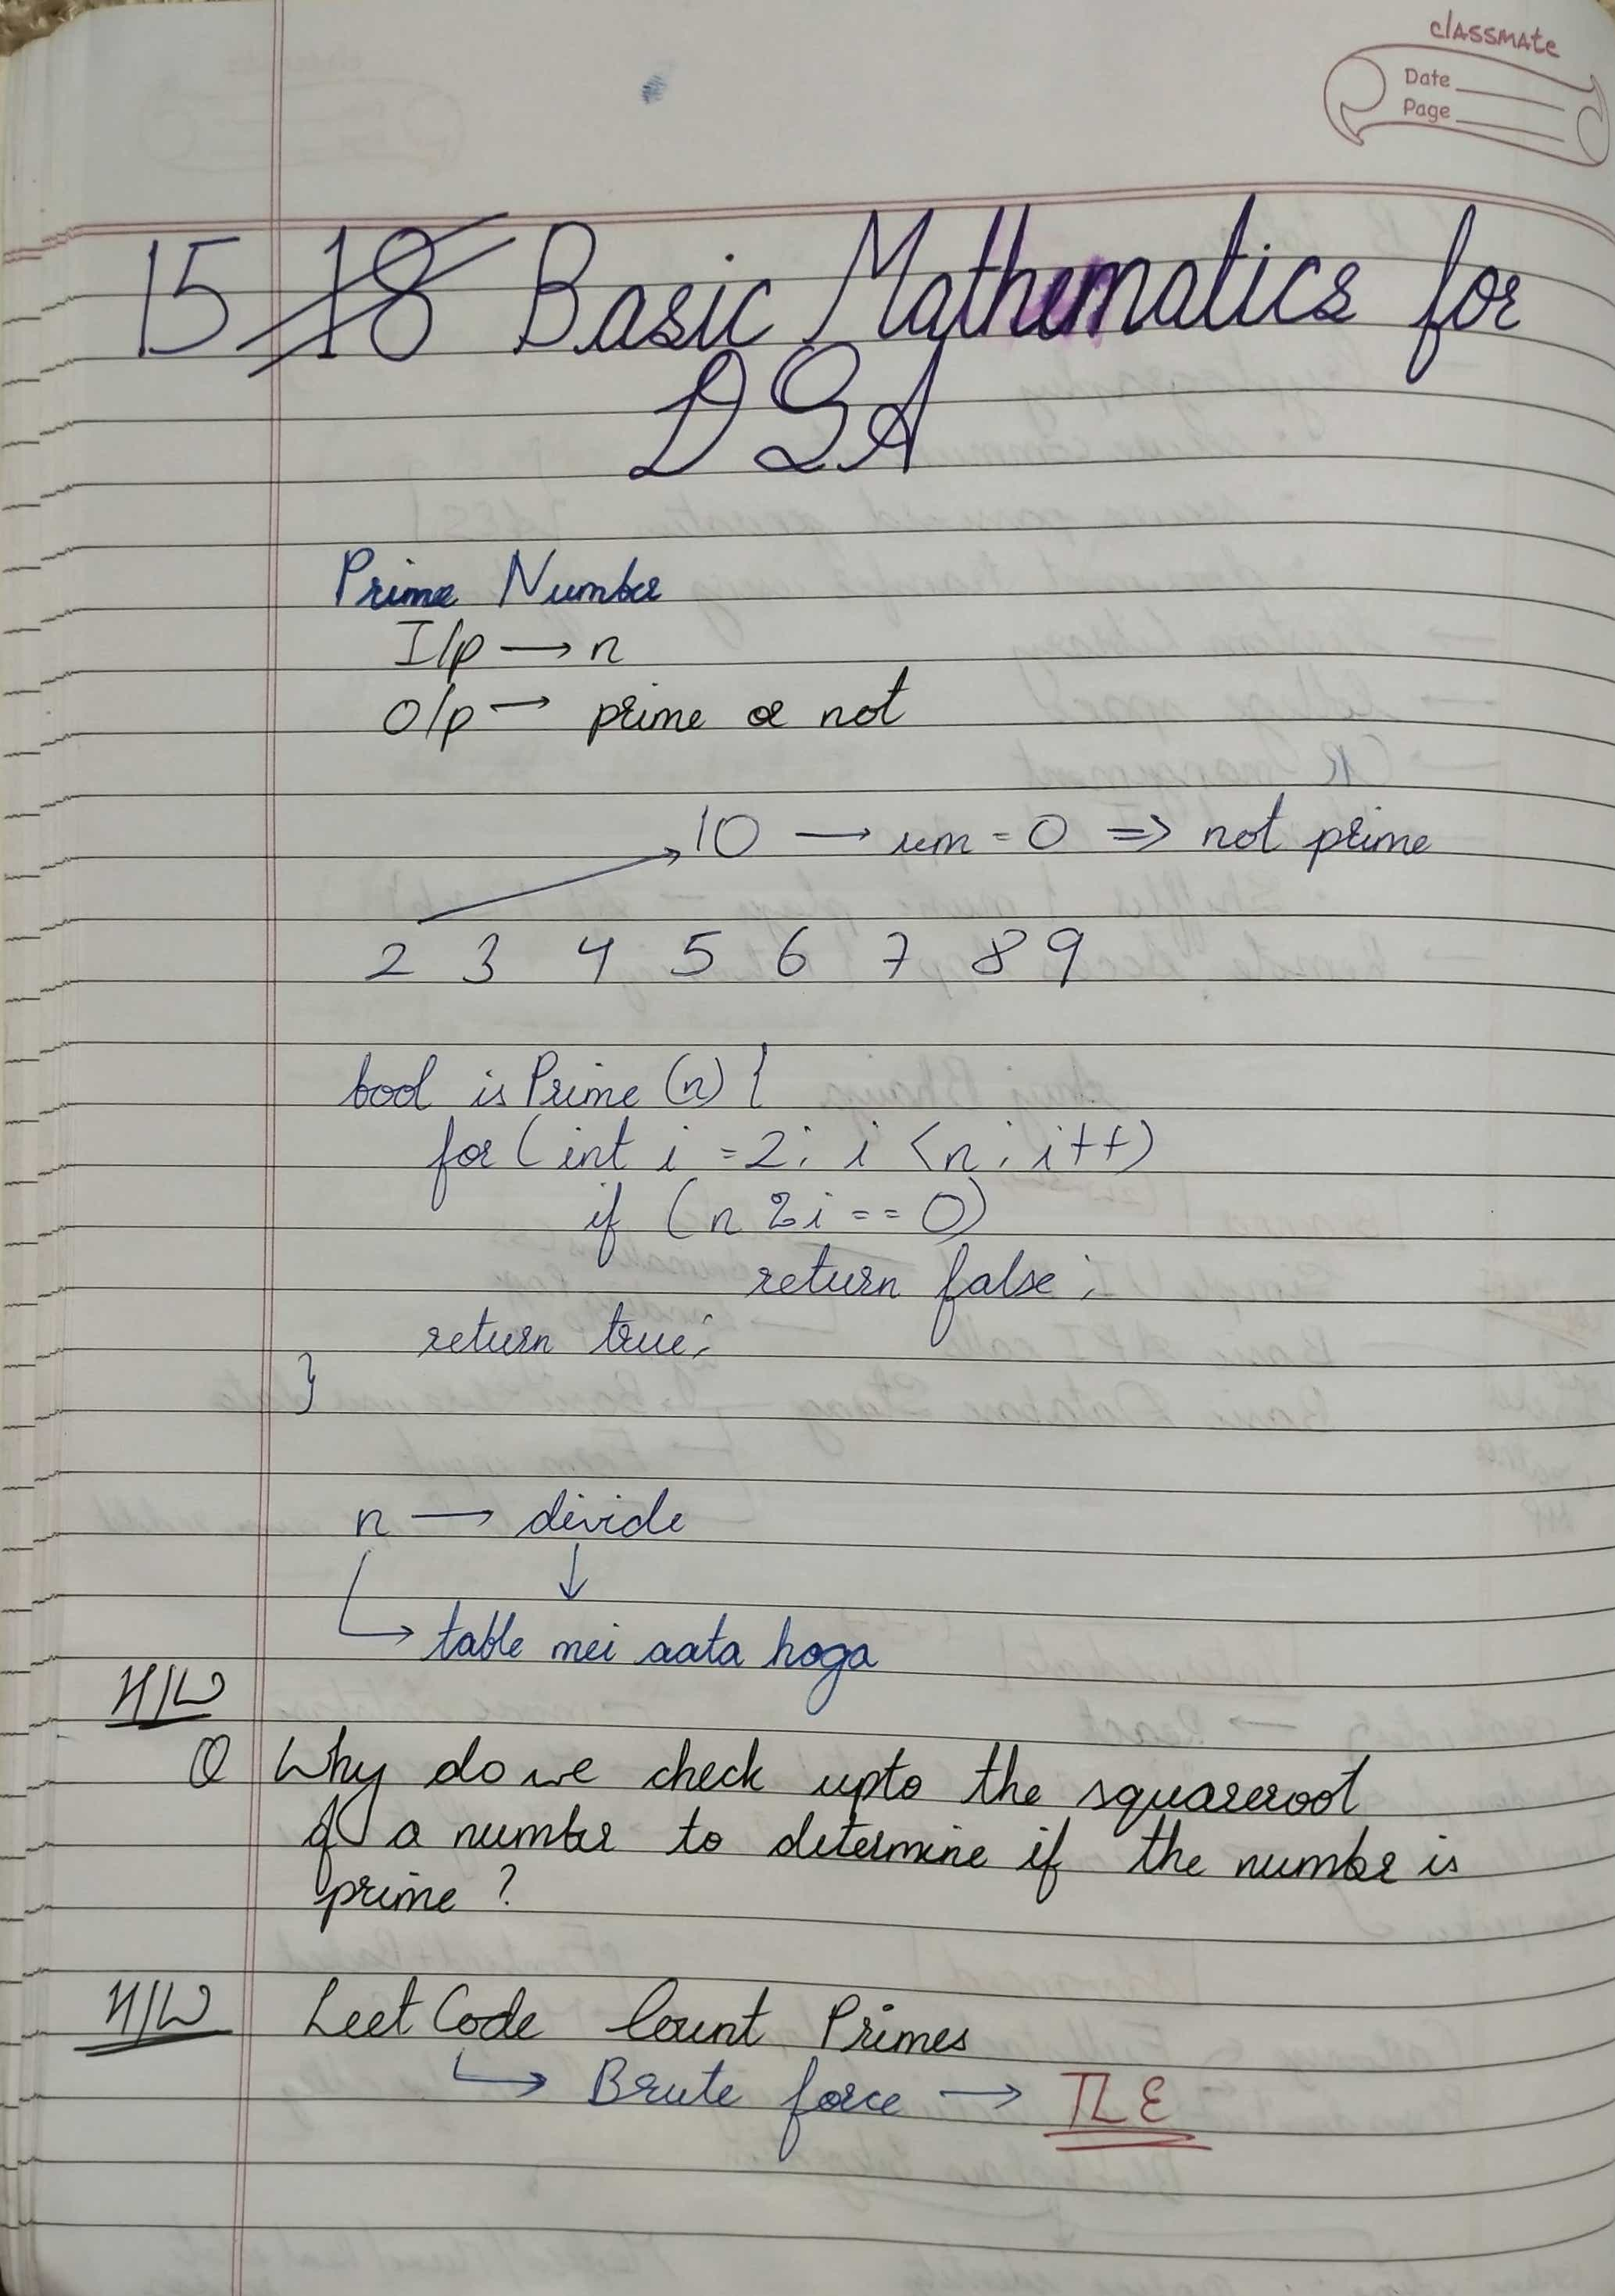 classmate
Date
Page
15 18 Basic Mathematics for
DSA
Prime Number
I/p → n
O/p → prime or not
10 → rem = 0 => not prime
2 3 4 5 6 7 8 9
bool isPrime (n) {
for (int i = 2; i < n; i++)
if (n % i == 0)
return false;
return true;
}
n → divide
↓
↳ table mei aata hoga
H/W
Q Why do we check upto the squareroot
of a number to determine if the number is
prime ?
H/W LeetCode Count Primes
↳ Brute force → TLE